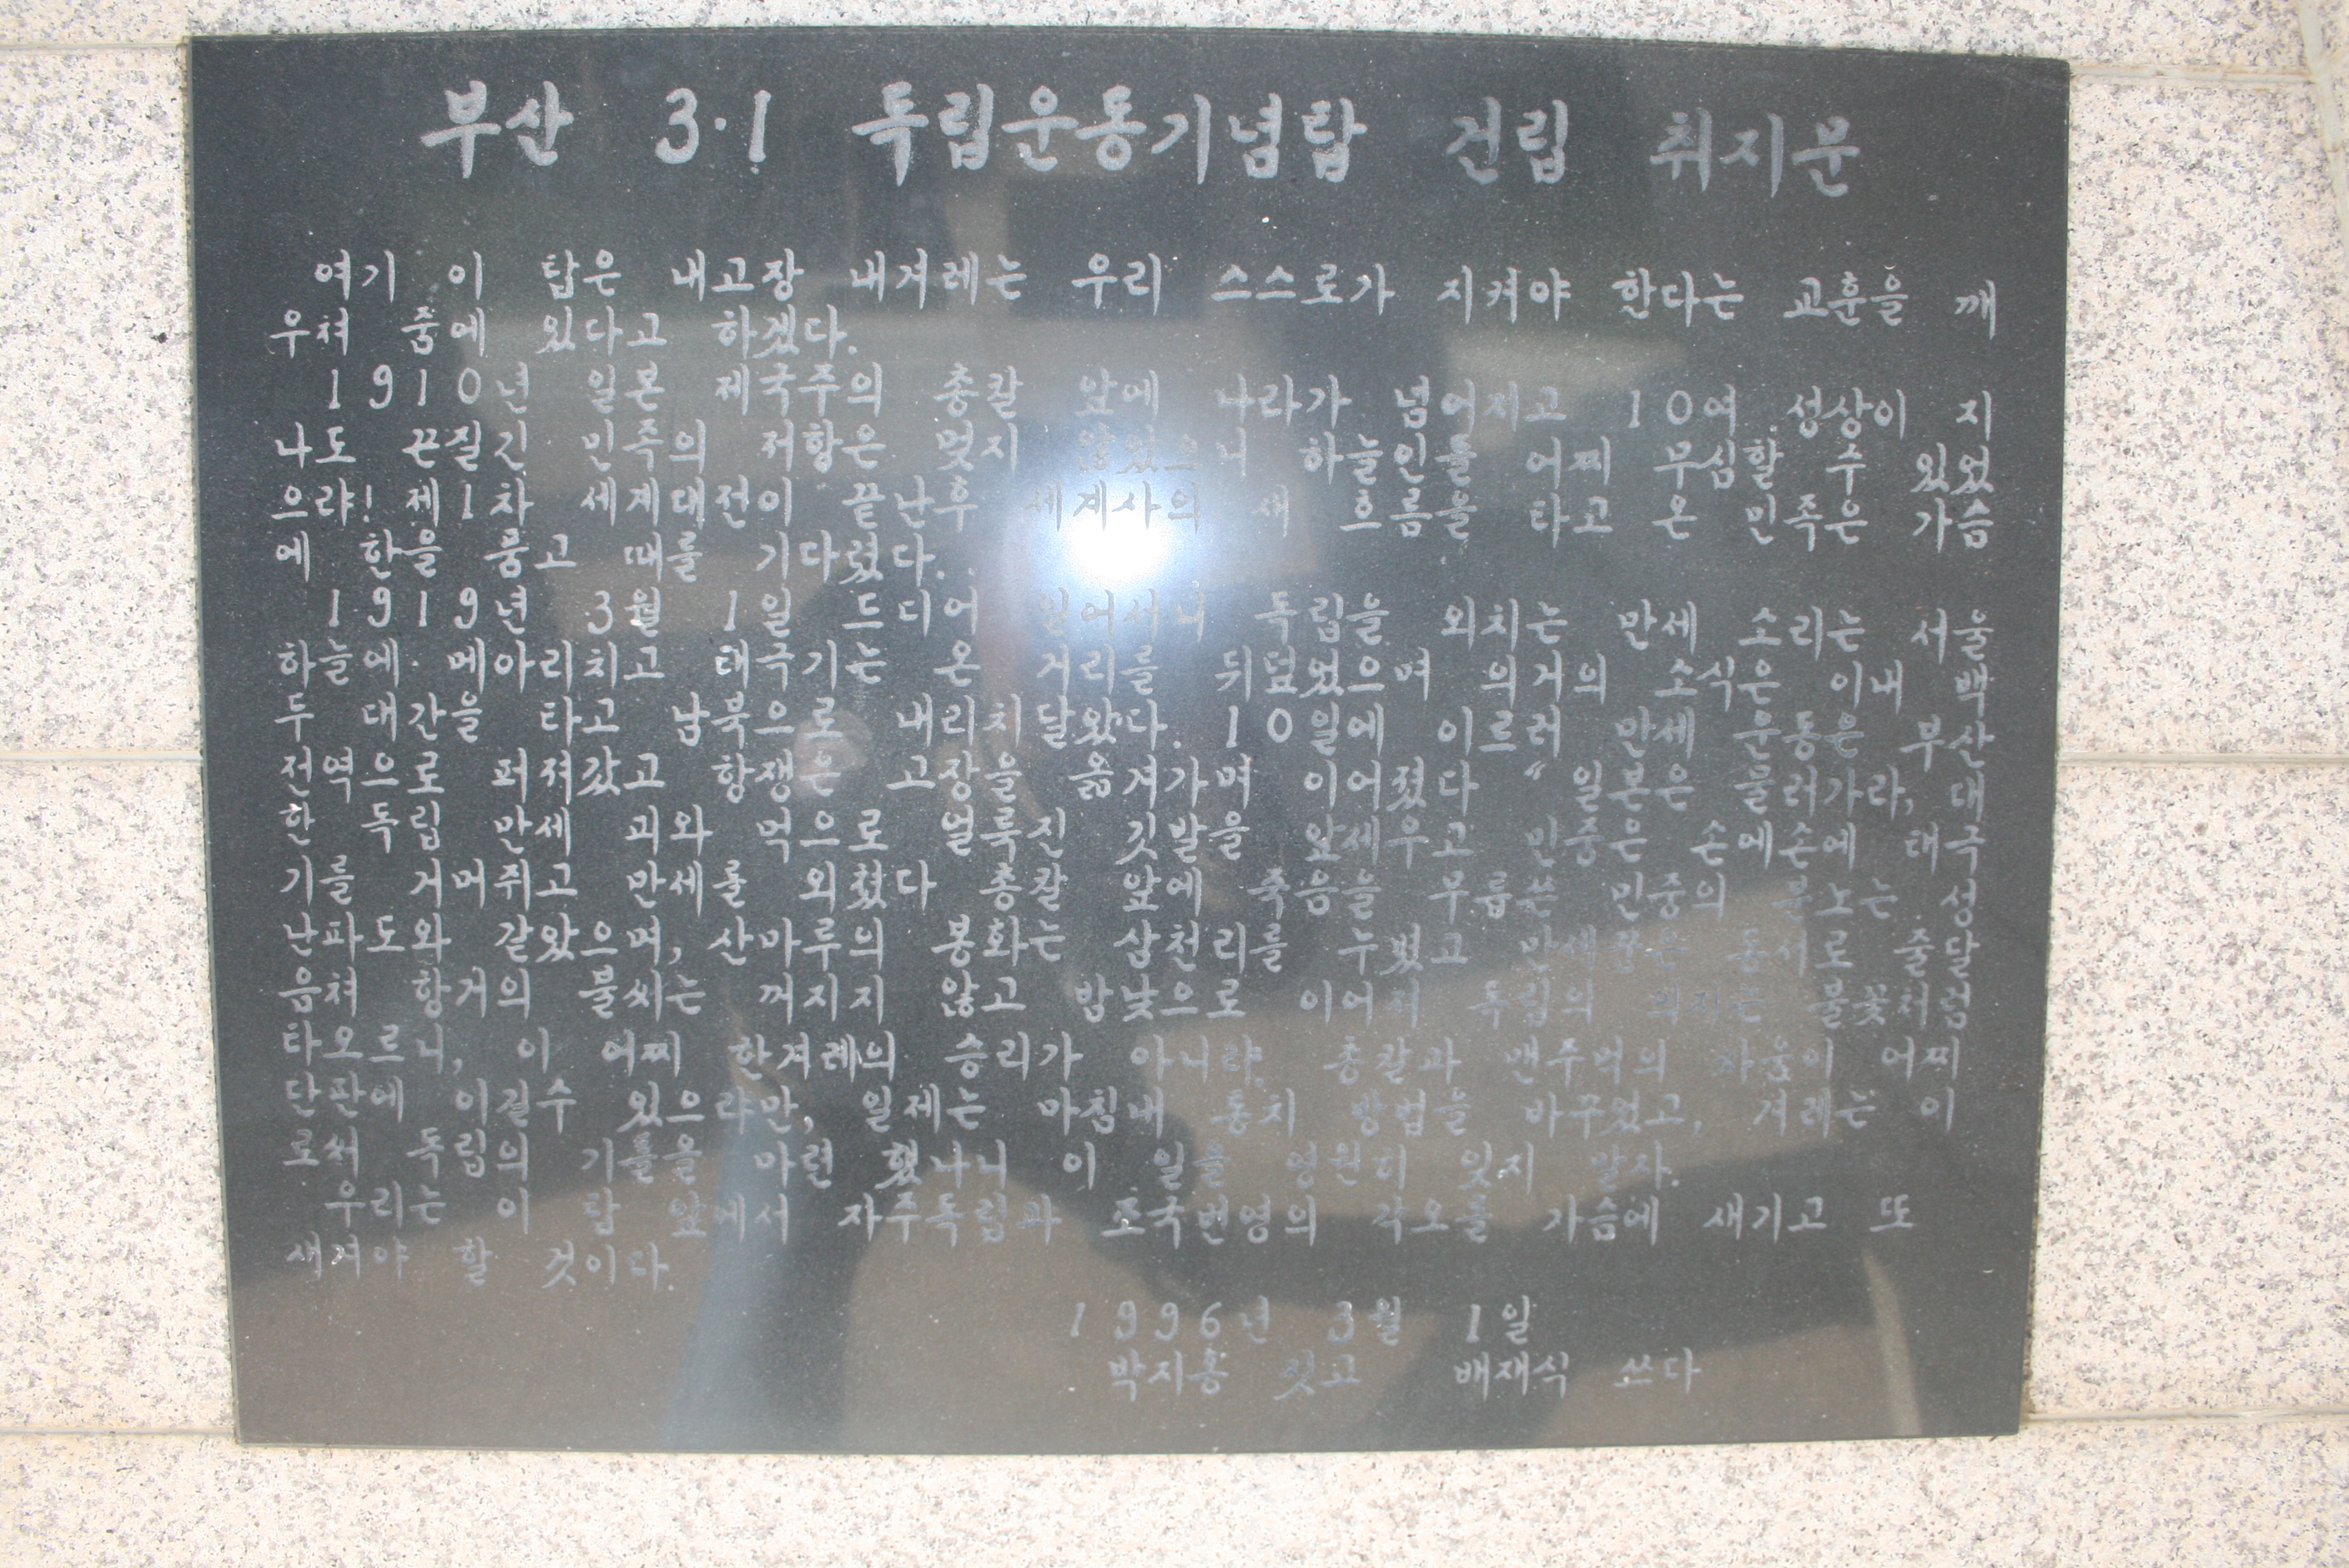 부산 3·1 독립운동기념탑 건립 취지문
여기 이 탑은 내고장 내겨레는 우리 스스로가 지켜야 한다는 교훈을 깨
우쳐 줌에 있다고 하겠다.
1910년 일본 제국주의 총칼 앞에 나라가 넘어지고 10여 성상이 지
나도 끈질긴 민족의 저항은 멎지 않았으니 하늘인들 어찌 무심할 수 있었
으랴! 제1차 세계대전이 끝난후 세계사의 새 흐름을 타고 온 민족은 가슴
에 한을 품고 때를 기다렸다.
1919년 3월 1일 드디어 일어서니 독립을 외치는 만세 소리는 서울
하늘에 메아리치고 태극기는 온 거리를 뒤덮었으며 의거의 소식은 이내 백
두 대간을 타고 남북으로 내리치달왔다. 10일에 이르러 만세 운동은 부산
전역으로 퍼져갔고 항쟁은 고장을 옮겨가며 이어졌다 “일본은 물러가라, 대
한 독립 만세 피와 먹으로 얼룩진 깃발을 앞세우고 민중은 손에손에 태극
기를 거머쥐고 만세를 외쳤다 총칼 앞에 죽음을 무릅쓴 민중의 분노는 성
난파도와 같았으며, 산마루의 봉화는 삼천리를 누볐고 만세꾼은 동서로 줄달
음쳐 항거의 불씨는 꺼지지 않고 밤낮으로 이어져 독립의 의지는 불꽃처럼
타오르니, 이 어찌 한겨레의 승리가 아니랴. 총칼과 맨주먹의 싸움이 어찌
단판에 이길수 있으랴만, 일제는 마침내 통치 방법을 바꾸었고, 겨레는 이
로써 독립의 기틀을 마련 했나니 이 일을 영원히 잊지 말자.
우리는 이 탑 앞에서 자주독립과 조국번영의 각오를 가슴에 새기고 또
새겨야 할 것이다.
1996년 3월 1일
박지홍 짓고 배재식 쓰다